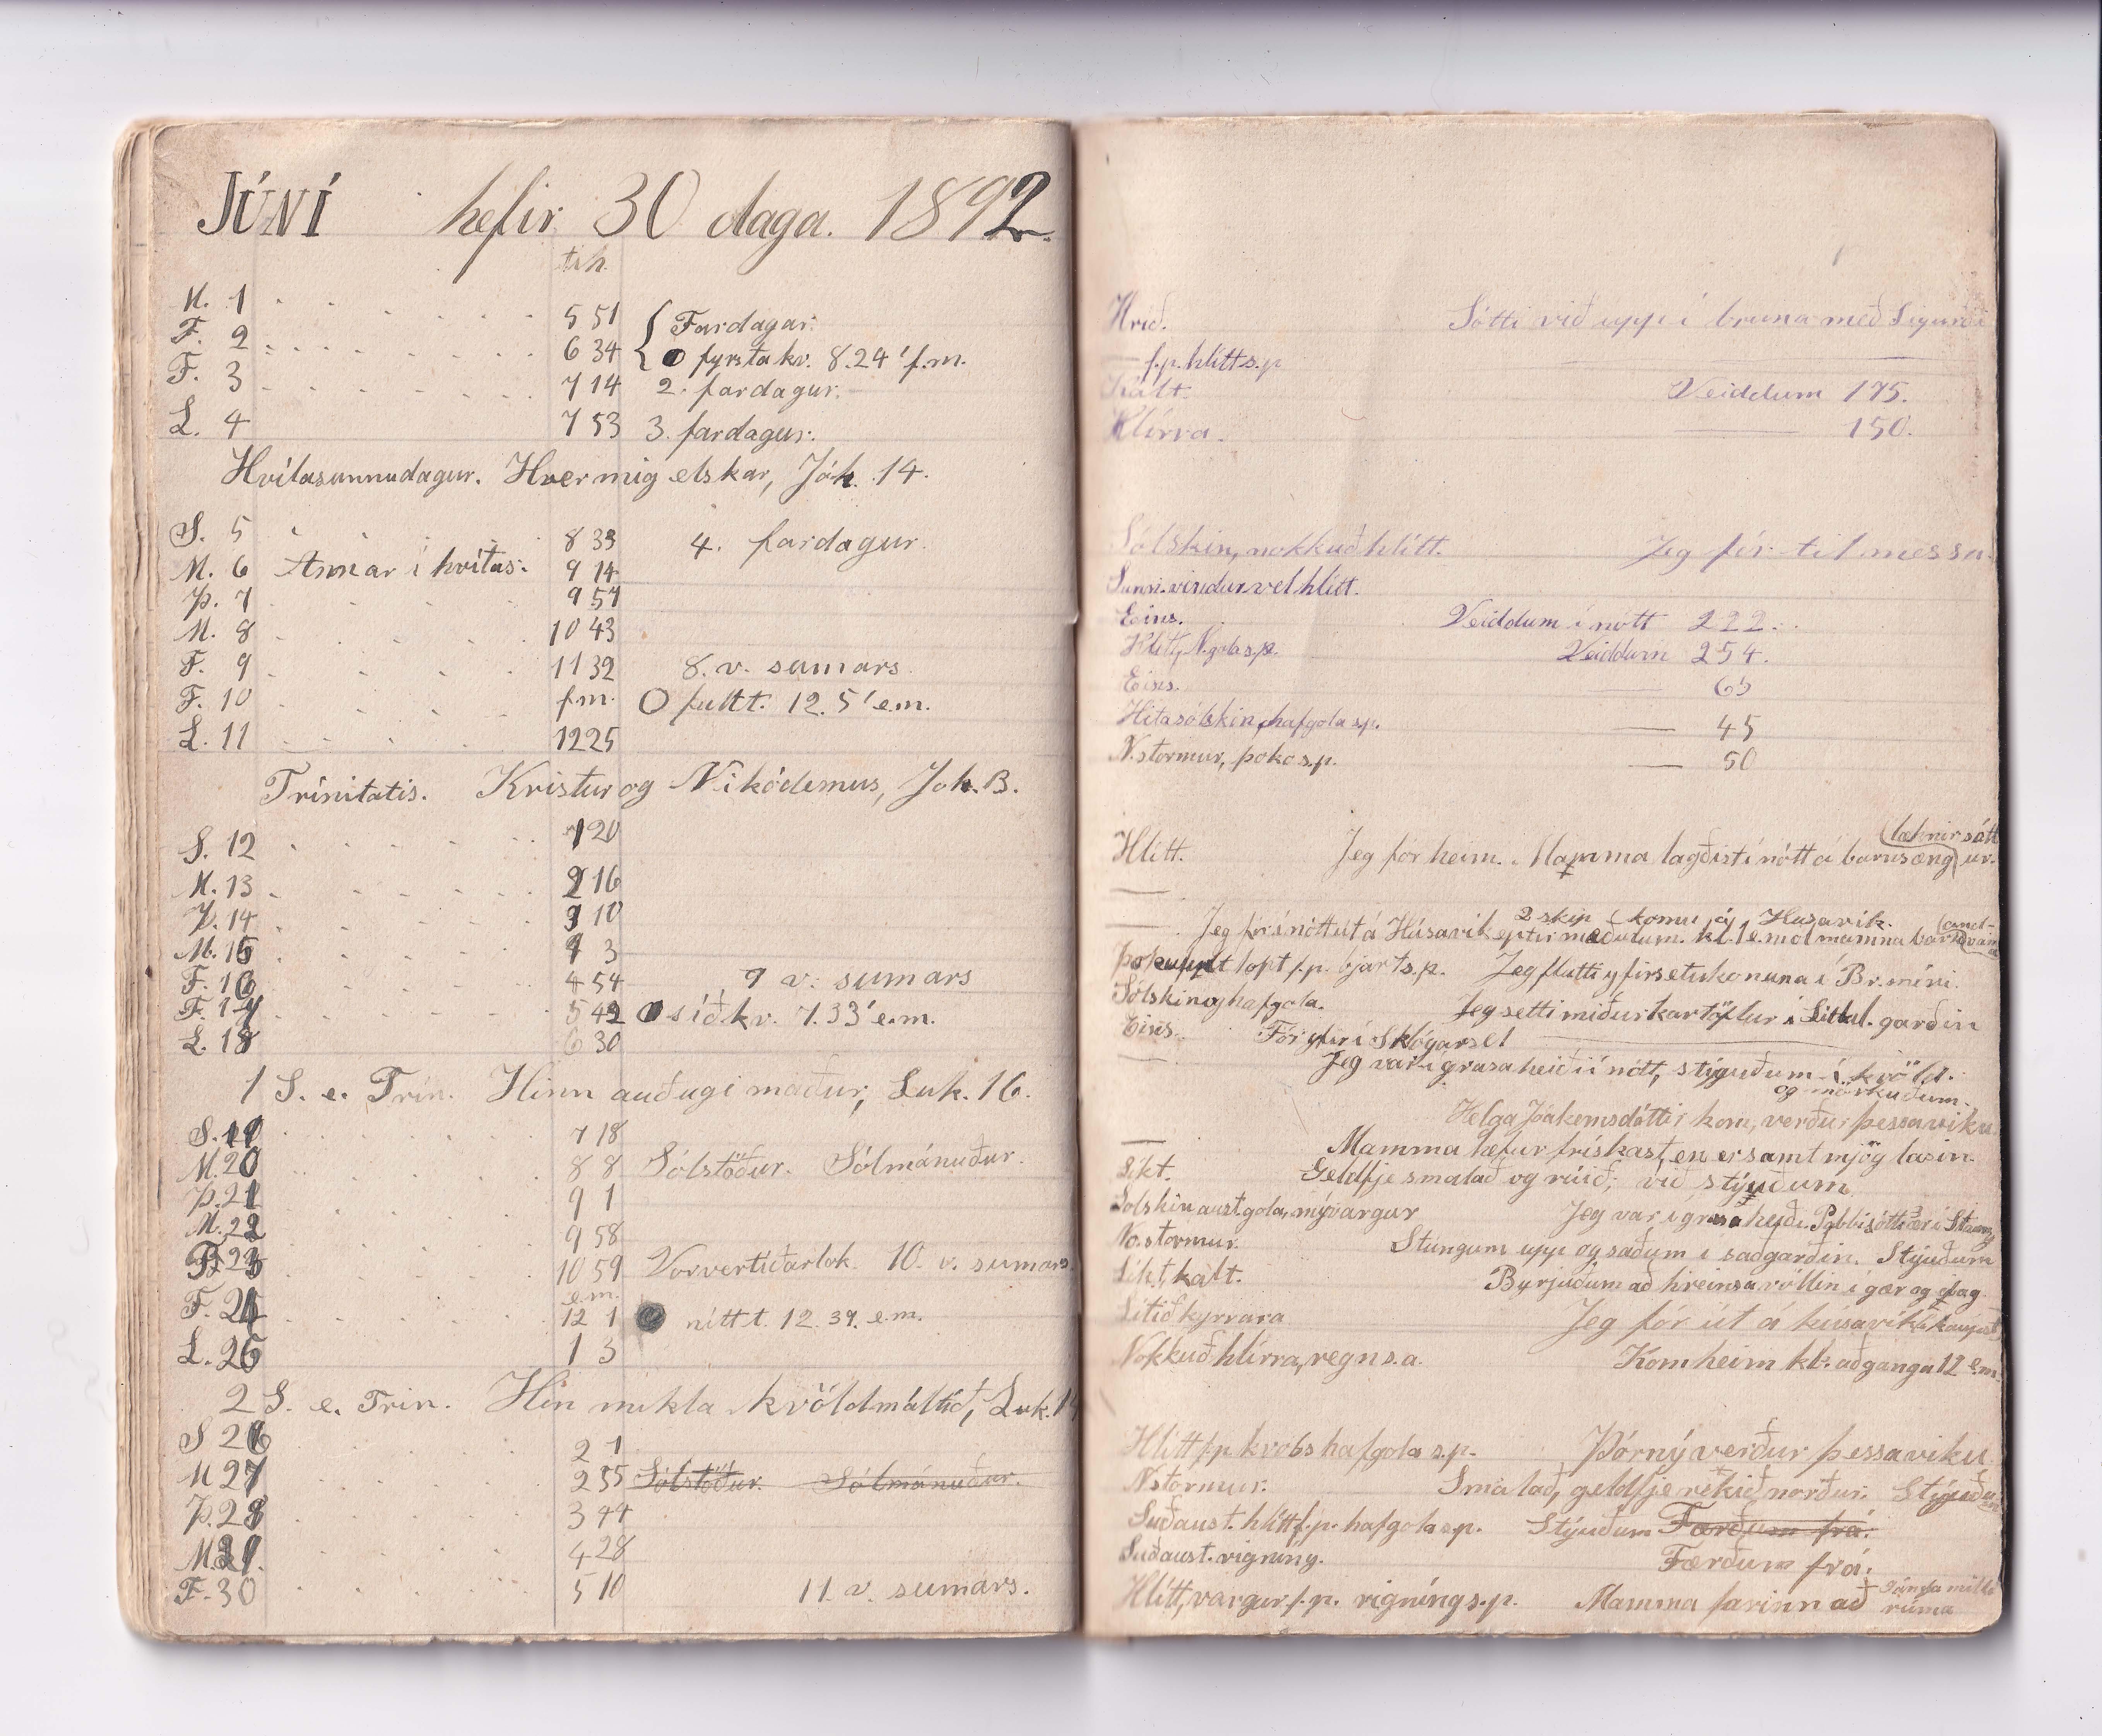 JÚNÍ hefir 30 daga. 1892.
t.h.
M. 1 5 51 Fardagar.
F. 2 6 34 fyrsta kv. 8.24' f.m.
F. 3 7 14 2. fardagur.
L. 4 7 53 3. fardagur.
Hvítasunnudagur. Hver mig elskar, Jóh. 14.
S. 5 8 33 4. fardagur.
M. 6 Annar í hvítas. 9 14
Þ. 7 9 57
M. 8 10 43
F. 9 11 32 8. v. sumars.
F. 10 f.m. fullt. 12. 5' e.m.
L. 11 12 25
Trínitatis. Kristur og Nikódemus, Joh. 3.
S. 12 1 20
M. 13 2 16
Þ. 14 3 10
M. 15 4 3
F. 16 4 54 9 v. sumars
F. 17 5 42 síð. kv. 7.33' e.m.
L. 18 6 30
1 S. e. Trín. Hinn auðugi maður, Luk. 16.
S. 19 7 18
M. 20 8 8 Sólstöður. Sólmánuður.
Þ. 21 9 1
M. 22 9 58
F. 23 10 59 Vorvertíðarlok. 10. v. sumars
e.m.
F. 24 12 1 nýtt t. 12. 39. e.m.
L. 25 1 3
2 S. e. Trin. Hin mikla kvöldmáltíð, Luk. 14
S 26 2 1
M 27 2 55 Sólstöður. Sólmánuður.
Þ. 28 3 44
M. 29. 4 28
F. 30 5 10 11. v. sumars.
Hríð. Sótti við upp í bruna með Sigurði
f.p. hlítt s.p
Kalt. Veiddum 175.
Hlírra. 150.
Sólskin, nokkuð hlítt. Jeg fór til messu.
Sunnvindur vel hlítt.
Eins. Veiddum í nótt 222.
Hlítt, N.gola s.p. Veiddum 254.
Eins. 65
Hitasólskin, hafgola s.p. 45
N.stormur, þoka s.p. 50
læknir sótt
Hlítt. Jeg fór heim. Mamma lagðist í nótt á barnsæng ur.
2 skip komu á Húsavík.
Jeg fór í nótt út á Húsavík eptir meðulum. kl. 1 e.m ól mamma barn
lopt f.p. bjart s.p. Jeg flutti yfirsetukonuna í Br.mýri.
Sólskin og hafgola. Jeg setti niður kartöflur í Littul. garðin
Eins. Fór yfir í Skógarsel
Jeg var í grasaheiði í nótt, stýuðum í kvöld.
og mörkuðum.
Helga Jóakemsdóttir kom, verður þessa viku
Mamma hefur frískast, en er samt mjög lasin.
Líkt. Geldfje smalað og rúið; við stýuðum
Sólskin aust.gola, mývargur Jeg var í grasaheiði. Pabbi sótti ær í
No.stormur. Stungum upp og sáðum í sáðgarðin. Stýuðum
Líkt, kalt. Byrjuðum að hreinsa völlin í gær og dag.
Lítið kyrrara Jeg fór út á húsavík
Nokkuð hlírra, regn s.a. Kom heim kl. að ganga 12 e.m.
Hlítt f.p. hafgola s.p. Þórný verður þessa viku
N.stormur. Smalað, geldfje rekið norður. Stýuðu
Suðaust. hlítt f.p. hafgola s.p. Stýuðum Færðum frá.
Suðaust. rigning. Færðum frá.
Hlítt, vargur f.p. rigning s.p. Mamma farinn að gánga milli
rúma